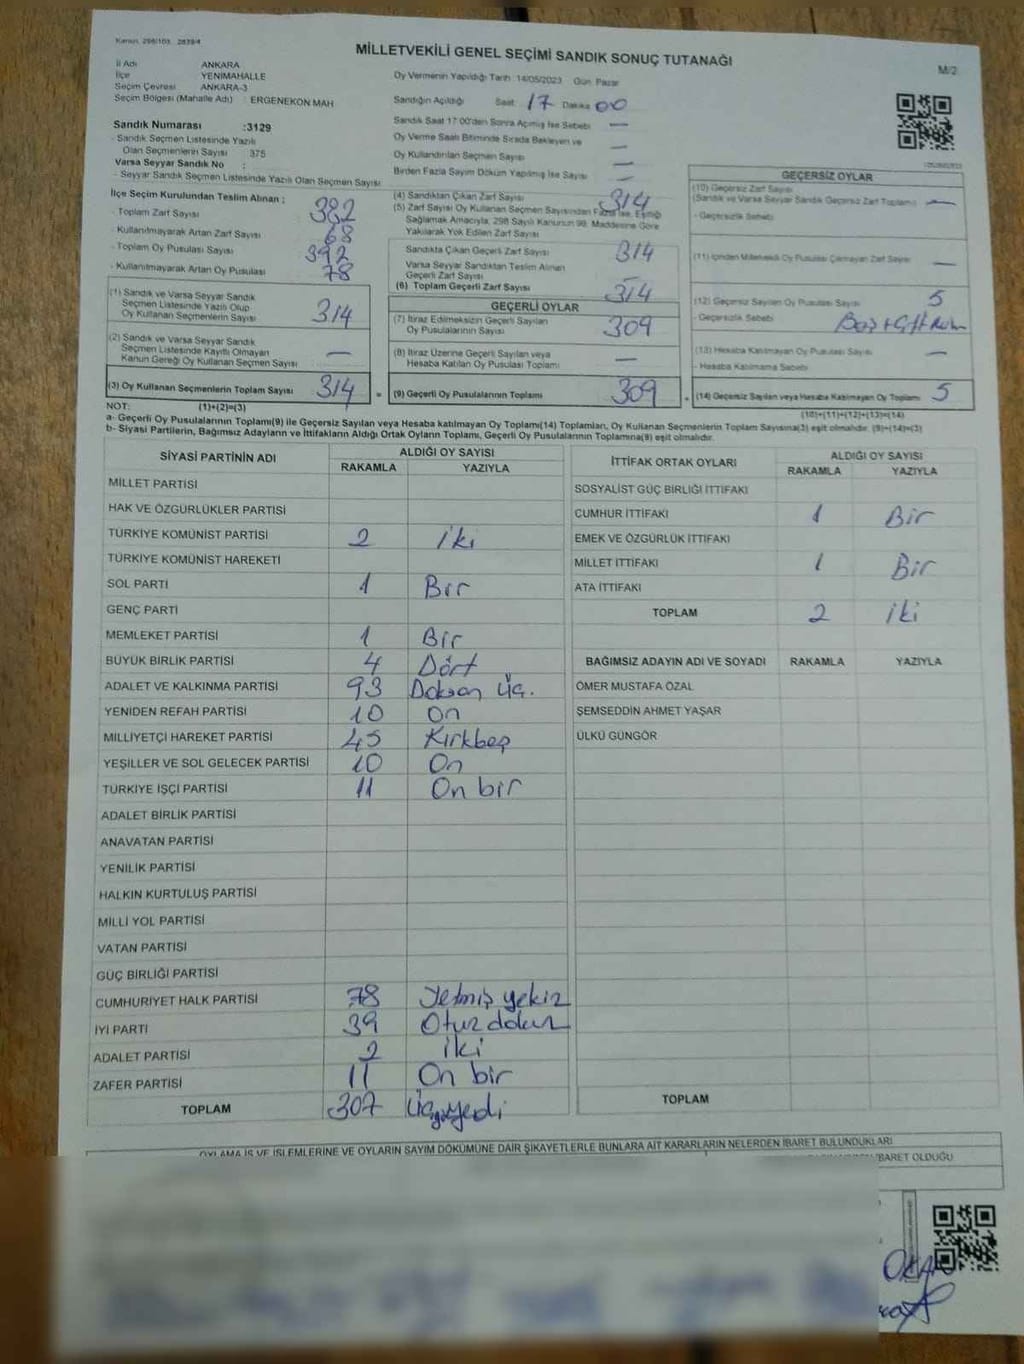 Kanun: 298/103, 2839/4
MİLLETVEKİLİ GENEL SEÇİMİ SANDIK SONUÇ TUTANAĞI
M/2
İl Adı ANKARA
İlçe YENİMAHALLE
Seçim Çevresi ANKARA-3
Seçim Bölgesi (Mahalle Adı) : ERGENEKON MAH
Oy Vermenin Yapıldığı Tarih : 14/05/2023 Gün: Pazar
Sandığın Açıldığı Saat: 17 Dakika 00
Sandık Saat 17:00'den Sonra Açılmış İse Sebebi —
Oy Verme Saati Bitiminde Sırada Bekleyen ve
Oy Kullandırılan Seçmen Sayısı —
Birden Fazla Sayım Döküm Yapılmış İse Sayısı —
Sandık Numarası :3129
- Sandık Seçmen Listesinde Yazılı
Olan Seçmenlerin Sayısı : 375
Varsa Seyyar Sandık No :
- Seyyar Sandık Seçmen Listesinde Yazılı Olan Seçmen Sayısı
İlçe Seçim Kurulundan Teslim Alınan ;
- Toplam Zarf Sayısı 382
- Kullanılmayarak Artan Zarf Sayısı 68
- Toplam Oy Pusulası Sayısı 392
- Kullanılmayarak Artan Oy Pusulası 78
(1) Sandık ve Varsa Seyyar Sandık
Seçmen Listesinde Yazılı Olup
Oy Kullanan Seçmenlerin Sayısı 314
(2) Sandık ve Varsa Seyyar Sandık
Seçmen Listesinde Kayıtlı Olmayan
Kanun Gereği Oy Kullanan Seçmen Sayısı —
(3) Oy Kullanan Seçmenlerin Toplam Sayısı 314
(4) Sandıktan Çıkan Zarf Sayısı 314
(5) Zarf Sayısı Oy Kullanan Seçmen Sayısından Fazla İse, Eşitliği
Sağlamak Amacıyla, 298 Sayılı Kanunun 98. Maddesine Göre
Yakılarak Yok Edilen Zarf Sayısı
Sandıkta Çıkan Geçerli Zarf Sayısı 314
Varsa Seyyar Sandıktan Teslim Alınan
Geçerli Zarf Sayısı —
(6) Toplam Geçerli Zarf Sayısı 314
GEÇERLİ OYLAR
(7) İtiraz Edilmeksizin Geçerli Sayılan
Oy Pusulalarının Sayısı 309
(8) İtiraz Üzerine Geçerli Sayılan veya
Hesaba Katılan Oy Pusulası Toplamı —
= (9) Geçerli Oy Pusulalarının Toplamı 309
GEÇERSİZ OYLAR
(10) Geçersiz Zarf Sayısı
(Sandık ve Varsa Seyyar Sandık Geçersiz Zarf Toplamı) —
- Geçersizlik Sebebi
(11) İçinden Milletvekili Oy Pusulası Çıkmayan Zarf Sayısı —
(12) Geçersiz Sayılan Oy Pusulası Sayısı 5
- Geçersizlik Sebebi
(13) Hesaba Katılmayan Oy Pusulası Sayısı —
- Hesaba Katılmama Sebebi
(14) Geçersiz Sayılan veya Hesaba Katılmayan Oy Toplamı 5
NOT: (1)+(2)=(3)
(10)+(11)+(12)+(13)=(14)
a- Geçerli Oy Pusulalarının Toplamı(9) ile Geçersiz Sayılan veya Hesaba katılmayan Oy Toplamı(14) Toplamları, Oy Kullanan Seçmenlerin Toplam Sayısına(3) eşit olmalıdır. (9)+(14)=(3)
b- Siyasi Partilerin, Bağımsız Adayların ve İttifakların Aldığı Ortak Oyların Toplamı, Geçerli Oy Pusulalarının Toplamına(9) eşit olmalıdır.
SİYASİ PARTİNİN ADI ALDIĞI OY SAYISI
RAKAMLA YAZIYLA
MİLLET PARTİSİ
HAK VE ÖZGÜRLÜKLER PARTİSİ
TÜRKİYE KOMÜNİST PARTİSİ 2 iki
TÜRKİYE KOMÜNİST HAREKETİ
SOL PARTİ 1 Bir
GENÇ PARTİ
MEMLEKET PARTİSİ 1 Bir
BÜYÜK BİRLİK PARTİSİ 4 Dört
ADALET VE KALKINMA PARTİSİ 93 Doksan üç.
YENİDEN REFAH PARTİSİ 10 On
MİLLİYETÇİ HAREKET PARTİSİ 45 Kırkbeş
YEŞİLLER VE SOL GELECEK PARTİSİ 10 On
TÜRKİYE İŞÇİ PARTİSİ 11 On bir
ADALET BİRLİK PARTİSİ
ANAVATAN PARTİSİ
YENİLİK PARTİSİ
HALKIN KURTULUŞ PARTİSİ
MİLLİ YOL PARTİSİ
VATAN PARTİSİ
GÜÇ BİRLİĞİ PARTİSİ
CUMHURİYET HALK PARTİSİ 78 Yetmiş yekiz
İYİ PARTİ 39 Otuz dokuz
ADALET PARTİSİ 2 iki
ZAFER PARTİSİ 11 On bir
TOPLAM 307 Üçyüzyedi
İTTİFAK ORTAK OYLARI ALDIĞI OY SAYISI
RAKAMLA YAZIYLA
SOSYALİST GÜÇ BİRLİĞİ İTTİFAKI
CUMHUR İTTİFAKI 1 Bir
EMEK VE ÖZGÜRLÜK İTTİFAKI
MİLLET İTTİFAKI 1 Bir
ATA İTTİFAKI
TOPLAM 2 iki
BAĞIMSIZ ADAYIN ADI VE SOYADI RAKAMLA YAZIYLA
ÖMER MUSTAFA ÖZAL
ŞEMSEDDİN AHMET YAŞAR
ÜLKÜ GÜNGÖR
TOPLAM
OYLAMA İŞ VE İŞLEMLERİNE VE OYLARIN SAYIM DÖKÜMÜNE DAİR ŞİKAYETLERLE BUNLARA AİT KARARLARIN NELERDEN İBARET BULUNDUKLARI
İBARET OLDUĞU